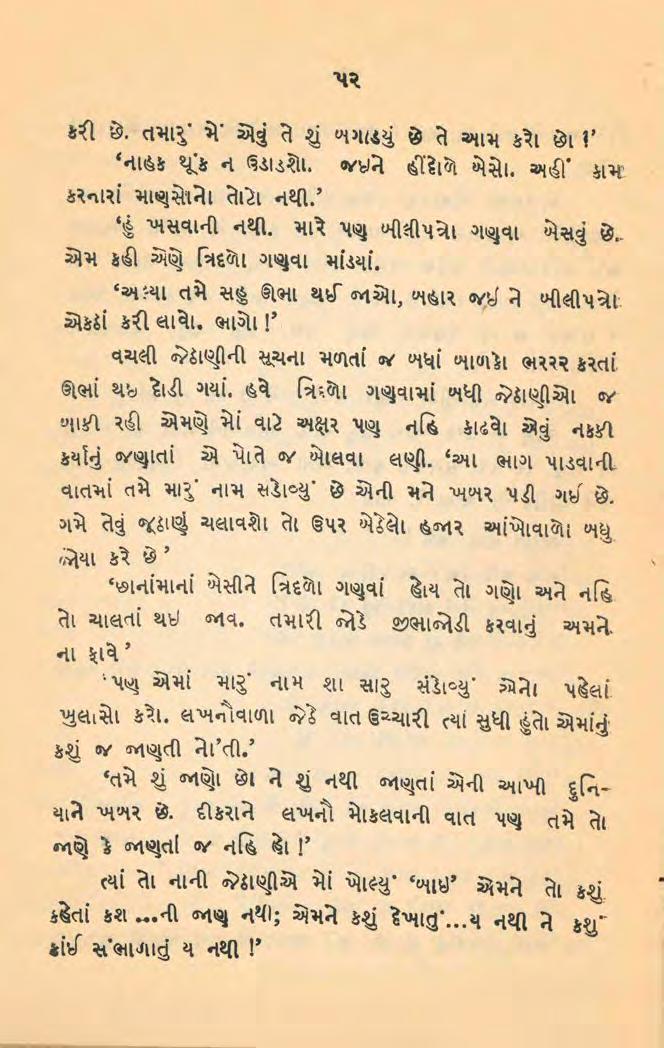 ૫૨
કરી છે. તમારું મેં એવું તે શું બગાડયું છે તે આમ કરો છો !’
‘નાહક થૂંક ન ઉડાડશો. જઇને હીંદોળે બેસો. અહીં કામ
કરનારાં માણસોનો તોટો નથી.’
‘હું ખસવાની નથી. મારે પણ બીલીપત્રો ગણવા બેસવું છે.
એમ કહી એણે ત્રિદળો ગણવા માંડયાં.
‘અલ્યા તમે સહુ ઊભા થઈ જાઓ, બહાર જઈ ને બીલીપત્રો
એકઠાં કરી લાવો. ભાગો !’
વચલી જેઠાણીની સૂચના મળતાં જ બધાં બાળકો ભરરર કરતાં
ઊભાં થઇ દોડી ગયાં. હવે ત્રિદળો ગણવામાં બધી જેઠાણીઓ જ
બાકી રહી એમણે મોં વાટે અક્ષર પણ નહિ કાઢવો એવું નકકી
કર્યાનું જણાતાં એ પોતે જ બોલવા લણી. ‘આ ભાગ પાડવાની
વાતમાં તમે મારું નામ સડોવ્યું છે એની મને ખબર પડી ગઈ છે.
ગમે તેવું જૂઠાણું ચલાવશો તો ઉપર બેઠેલો હજાર આંખોવાળો બધુ
જોયા કરે છે ’
‘છાનાંમાનાં બેસીને ત્રિદળો ગણવાં હોય તો ગણો અને નહિ
તો ચાલતાં થઇ જાવ. તમારી જોડે જીભાજોડી કરવાનું અમને
ના ફાવે ’
‘પણ એમાં મારું નામ શા સારુ સંડોવ્યું એનો પહેલાં
ખુલાસો કરો. લખનૌવાળા જેઠે વાત ઉચ્ચારી ત્યાં સુધી હુંતો એમાંનું
કશું જ જાણતી નો’તી.’
‘તમે શું જાણો છો ને શું નથી જાણતાં એની આખી દુનિ-
યાને ખબર છે. દીકરાને લખનૌ મોકલવાની વાત પણ તમે તો
જાણે કે જાણતાં જ નહિ હો !’
ત્યાં તો નાની જેઠાણીએ મોં ખોલ્યું ‘બાઇ’ એમને તો કશું
કહેતાં કશ ...ની જાણ નથી; એમને કશું દેખાતું...ય નથી ને કશું
કાંઈ સંભાળાતું ય નથી !’